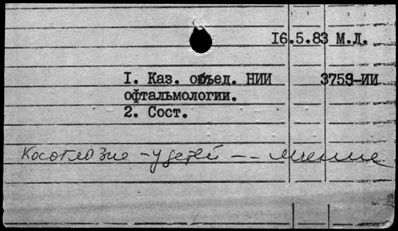 16.5.83 М.Л.
I. Каз. объед. НИИ 3759-ИИ
офтальмологии.
2. Сост.
Косоглазие - у детей --